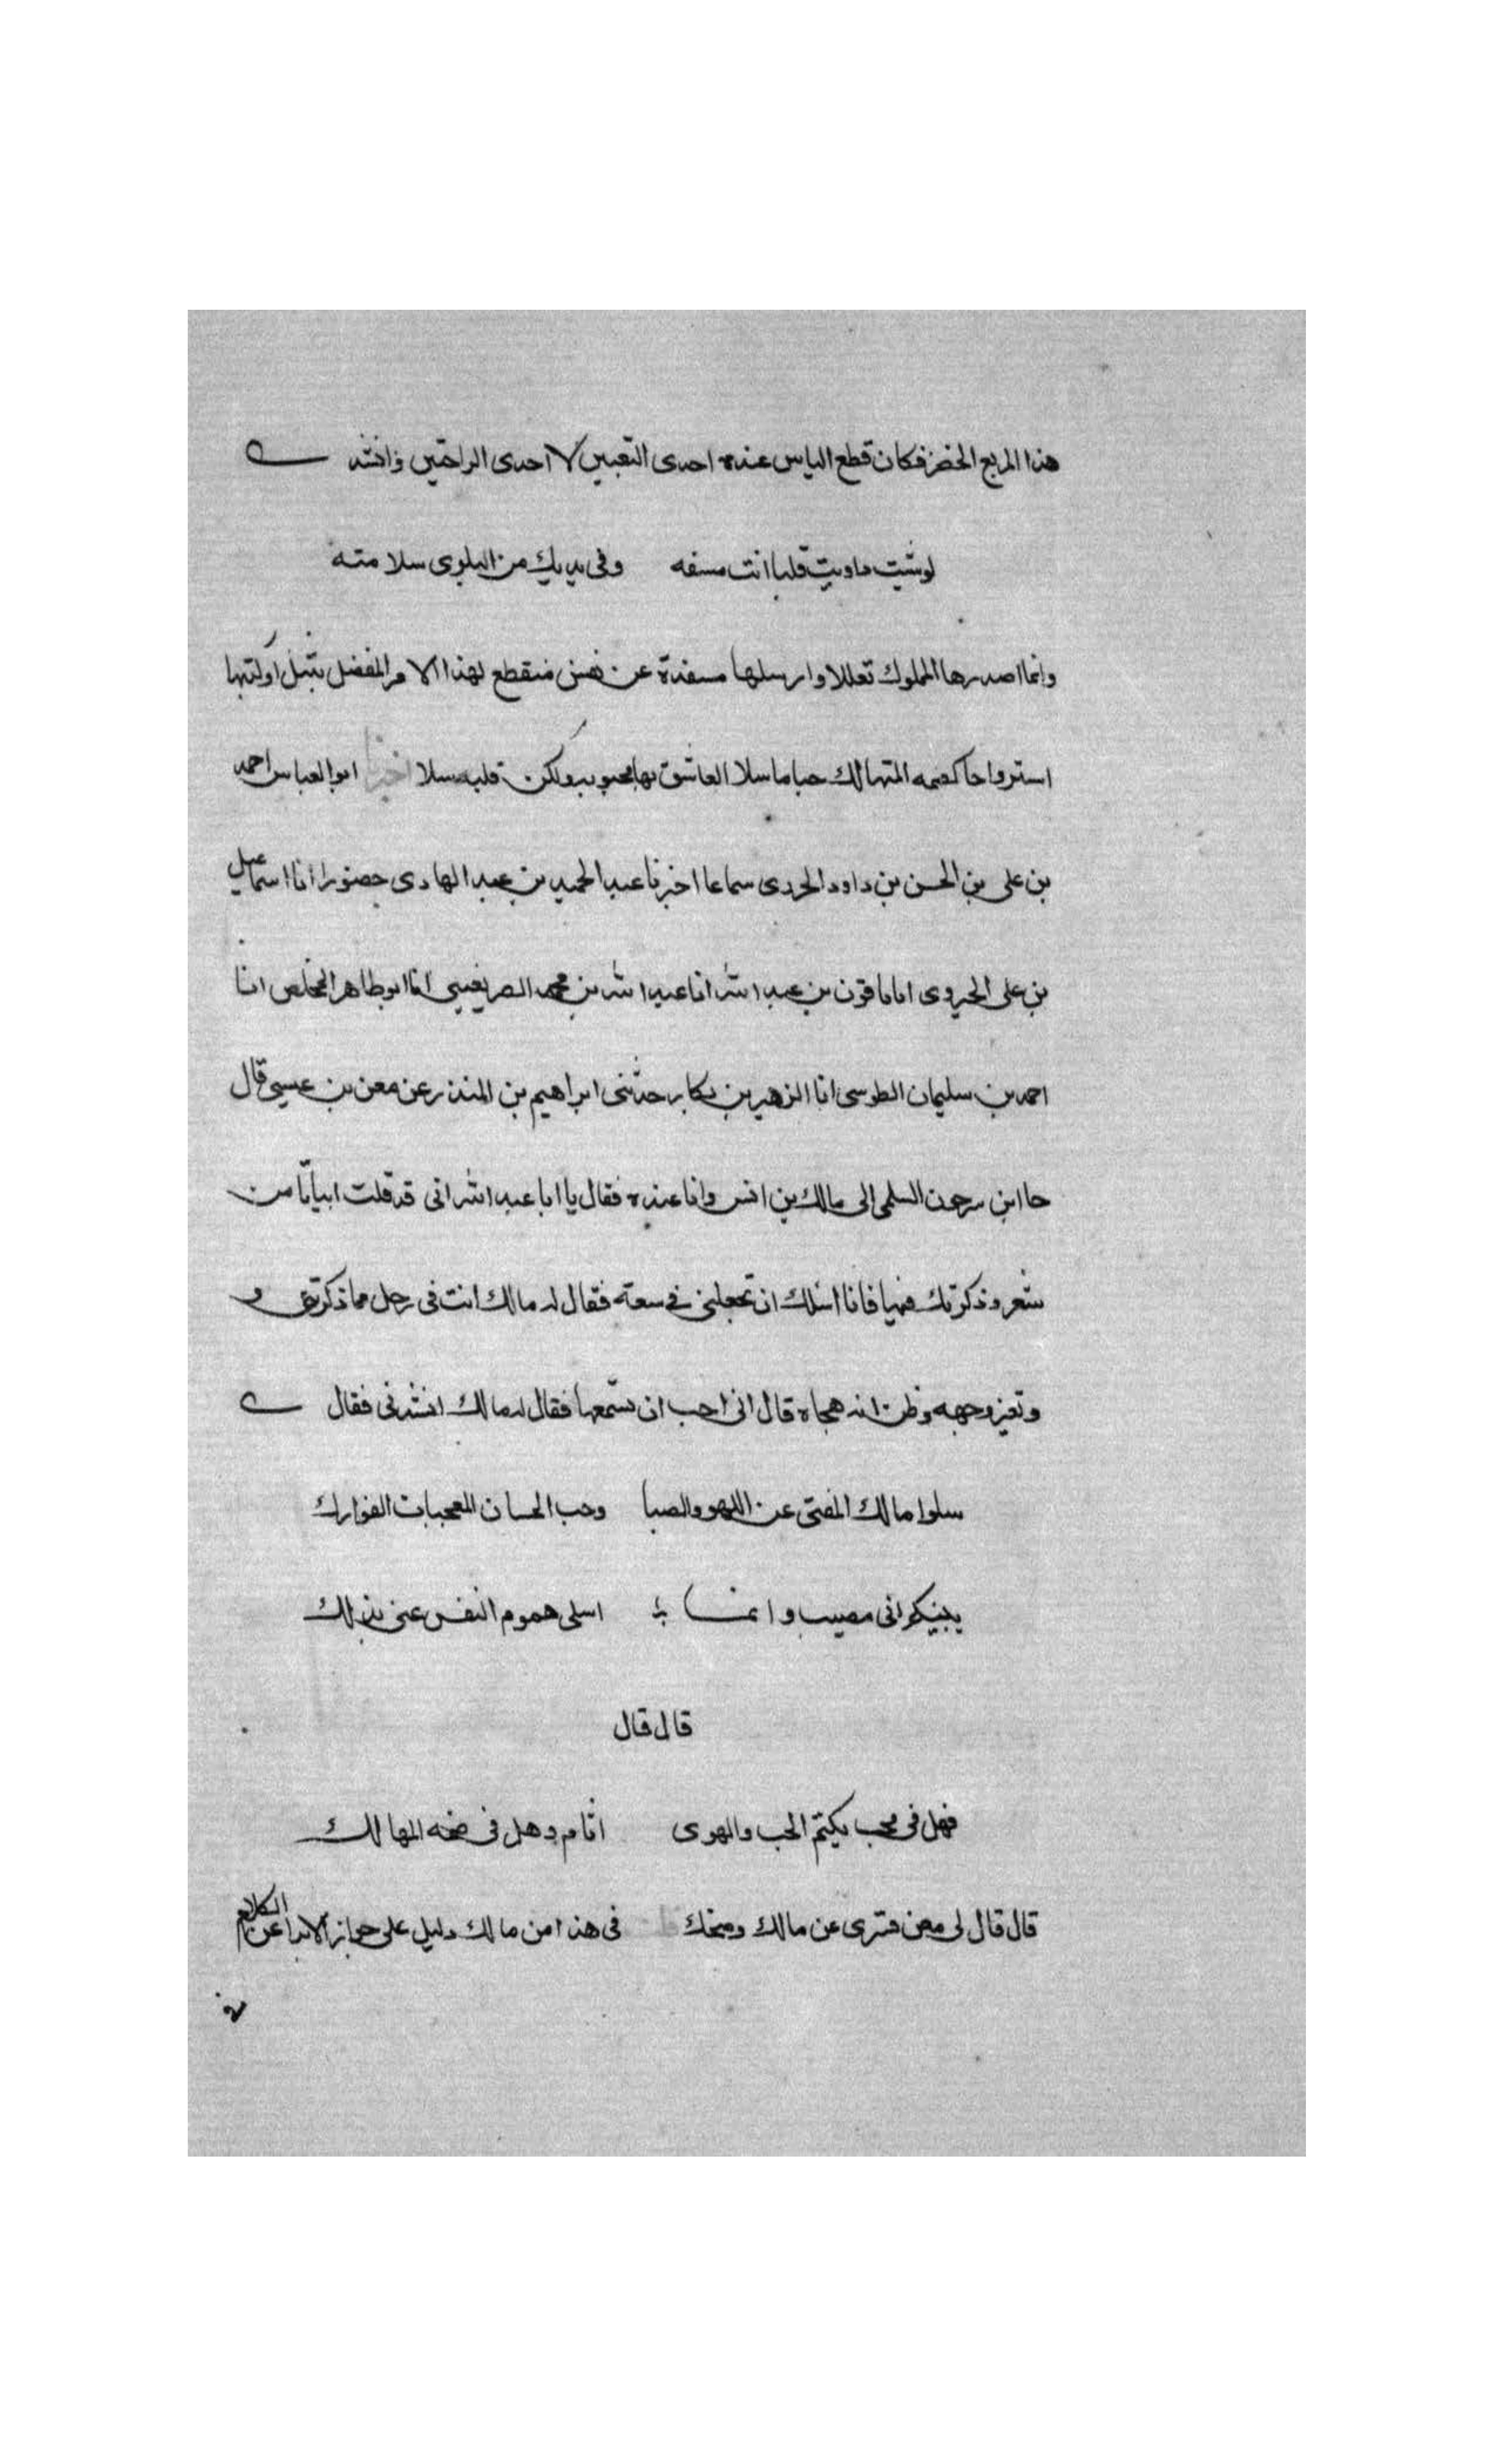 هذا المربع الخضر فكان قطع الياس عنده احدى التعبين لا احدى الراحتين وانشد
لو شيت داويت قلبا انت مسقمه وفى يديك من البلوى سلامته
وانما اصدرها المملوك تعللا وارسلها مسفرة عن نفس منقطع لهذا الامر المفضل بتبل اولتها
استرواحا كصمه المتهالك حبا ما سلا العاشق بها محبوبه ولكن قلبه سلا اخبرنا ابو العباس احمد
بن على بن الحسن بن داود الجردى سماعا اخبرنا عبد الحميد بن عبد الهادى حضورا انا اسماعيل
بن على الجروى اناماقوت بن عبد الله انا عبد الله بن محمد الصريفينى انا ابو طاهر المخلص انا
احمد بن سليمان الطوسى انا الزهير بن بكار حدثنى ابراهيم بن المنذر عن معن بن عيسى قال
حا ابن سرحون السلمى الى مالك بن انس وانا عنده فقال يا ابا عبد الله انى قد قلت ابياتا من
شعر وذكرتك فيها فانا اسلك ان تجعلنى فى سعة فقال له مالك انت فى حل مما ذكرتنى و
وتغير وجهه وظن انه هجاه قال انى احب ان تسمعها فقال له مالك انشدنى فقال
سلوا مالك المفتى عن اللهو والصبا وحب الحسان المعجبات الفوارك
ينبيكم انى مصيب وانما اسلى هموم النفس عنى بذلك
قال قال
فهل فى محب يكتم الحب والهوى اثام وهل فى ضمه المهالك
قال قال لى معن فسرى عن مالك وضحك فى هذا من مالك دليل على جواز الابرا عن الكلام